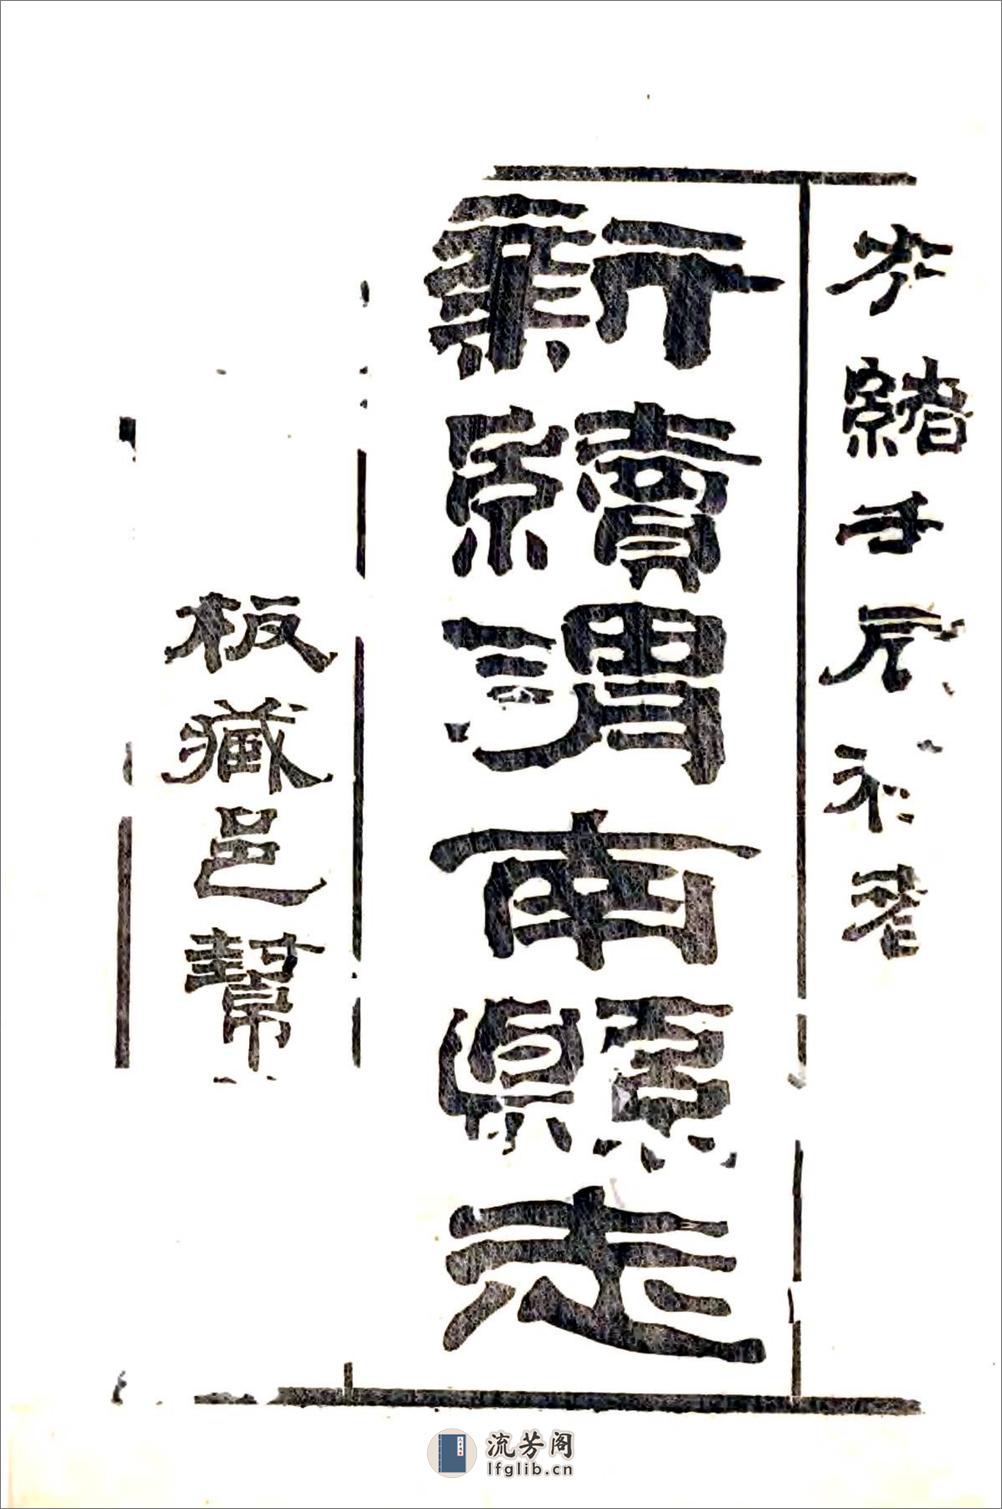 光緒壬辰初春
新續渭南縣志
板藏邑幫
流芳阁
lfglib.cn